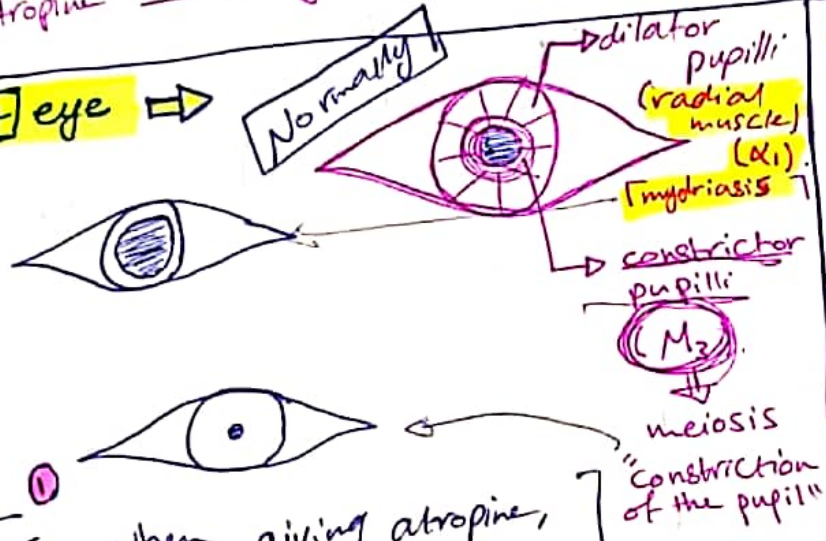 tropine
eye ⇨
Normally
dilator
pupilli
(radial
muscle)
(α₁)
mydriasis
constrictor
pupilli
meiosis
"constriction
of the pupil"
1
when giving atropine,